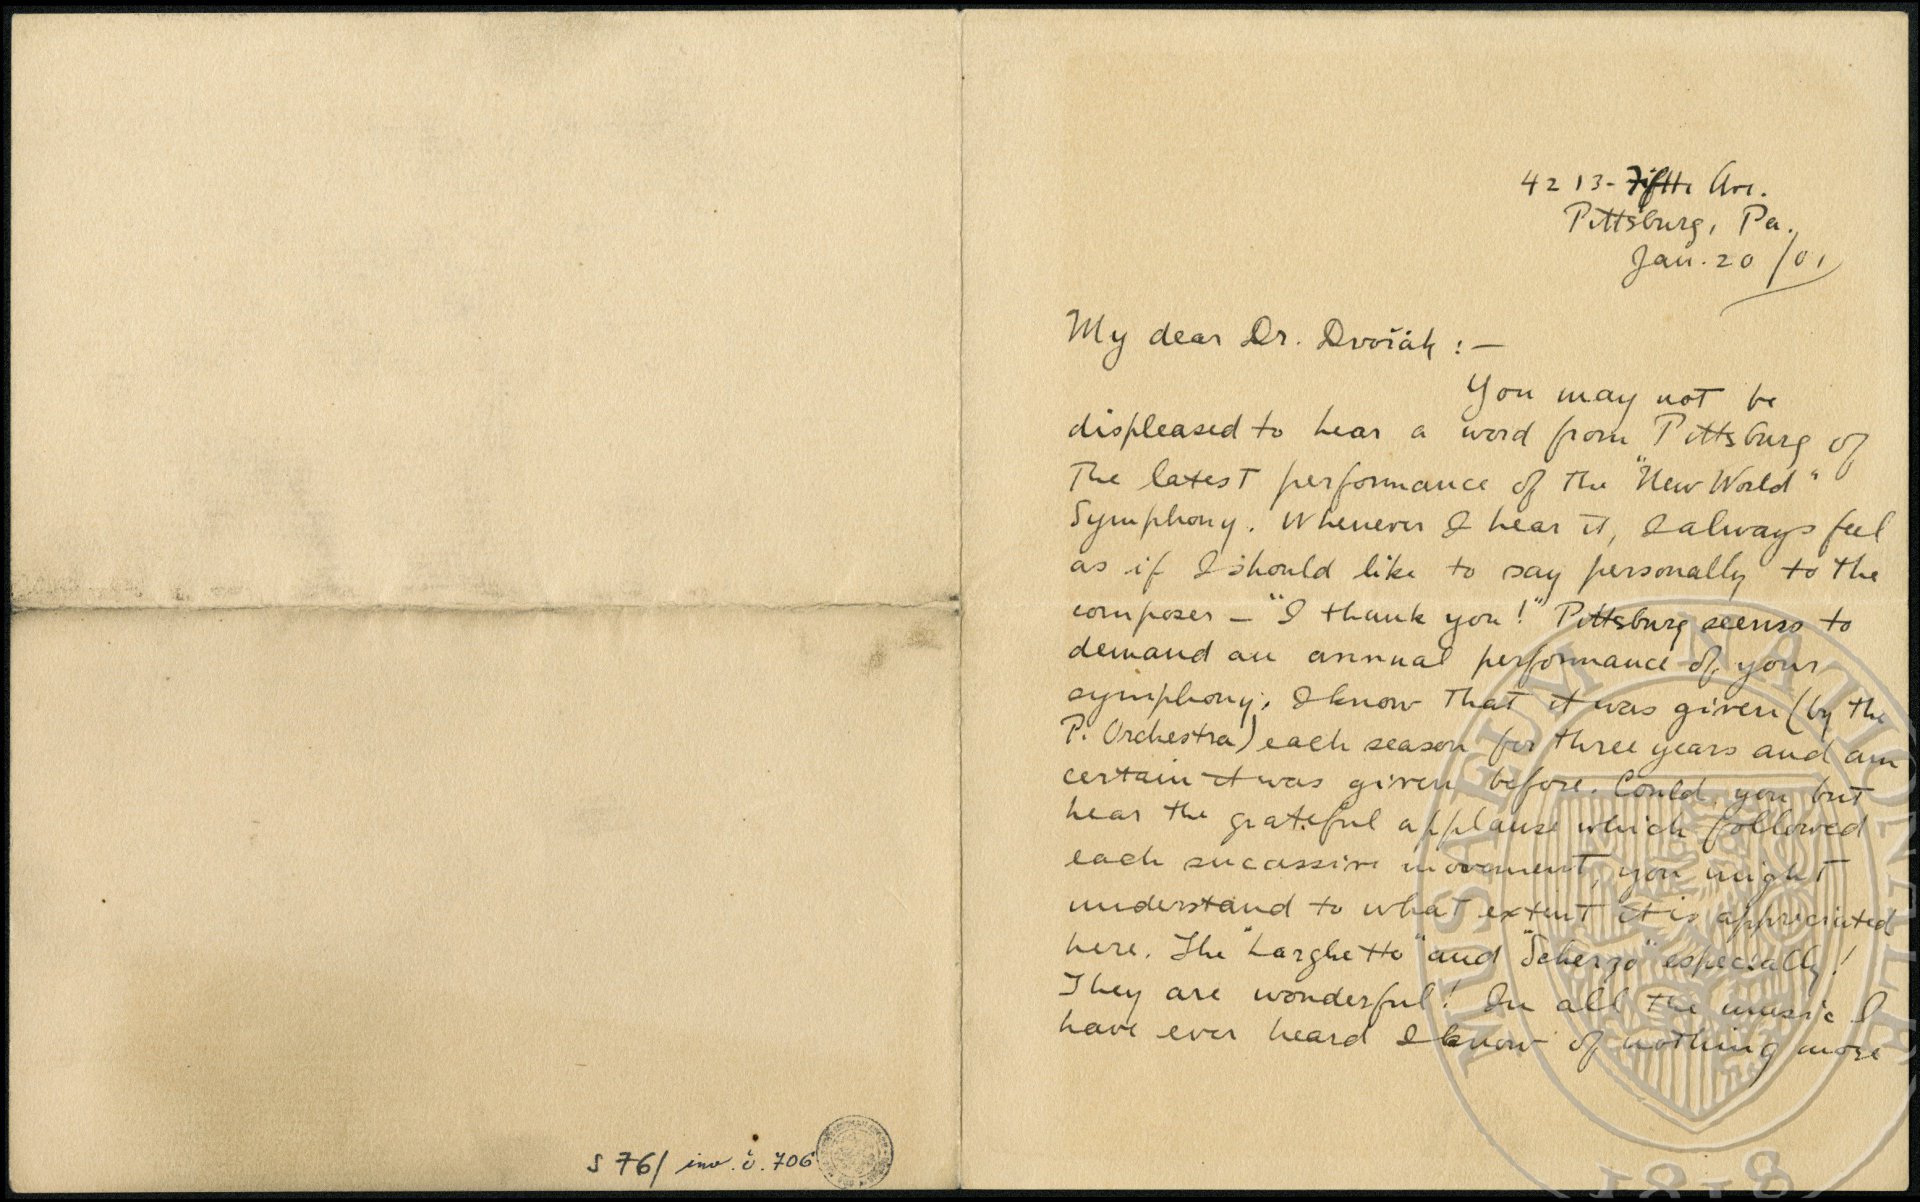 4213-Fifth Ave.
Pittsburg, Pa.
Jan. 20/01
My dear Dr. Dvořák :—
You may not be
displeased to hear a word from Pittsburg of
the latest performance of the "New World"
Symphony. Whenever I hear it, I always feel
as if I should like to say personally to the
composer — "I thank you!" Pittsburg seems to
demand an annual performance of your
symphony; I know that it was given (by the
P. Orchestra) each season for three years and am
certain it was given before. Could you but
hear the grateful applause which followed
each sucassive movement, you might
understand to what extent it is appreciated
here. The "Larghetto" and "Scherzo" especially!
They are wonderful! In all the music I
have ever heard I know of nothing more
S 76/ inv. č. 706
MUSAEUM NATIONALE
1818